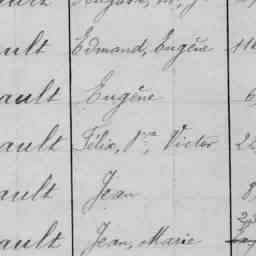 ault
ault Edmond, Eugène 116
ault Eugène
ault Félix, Victor 22
ault Jean 8
ault Jean, Marie